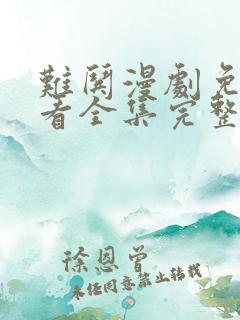 難關漫劇免
看全集完整
徐恩曾
未经同意禁止转载